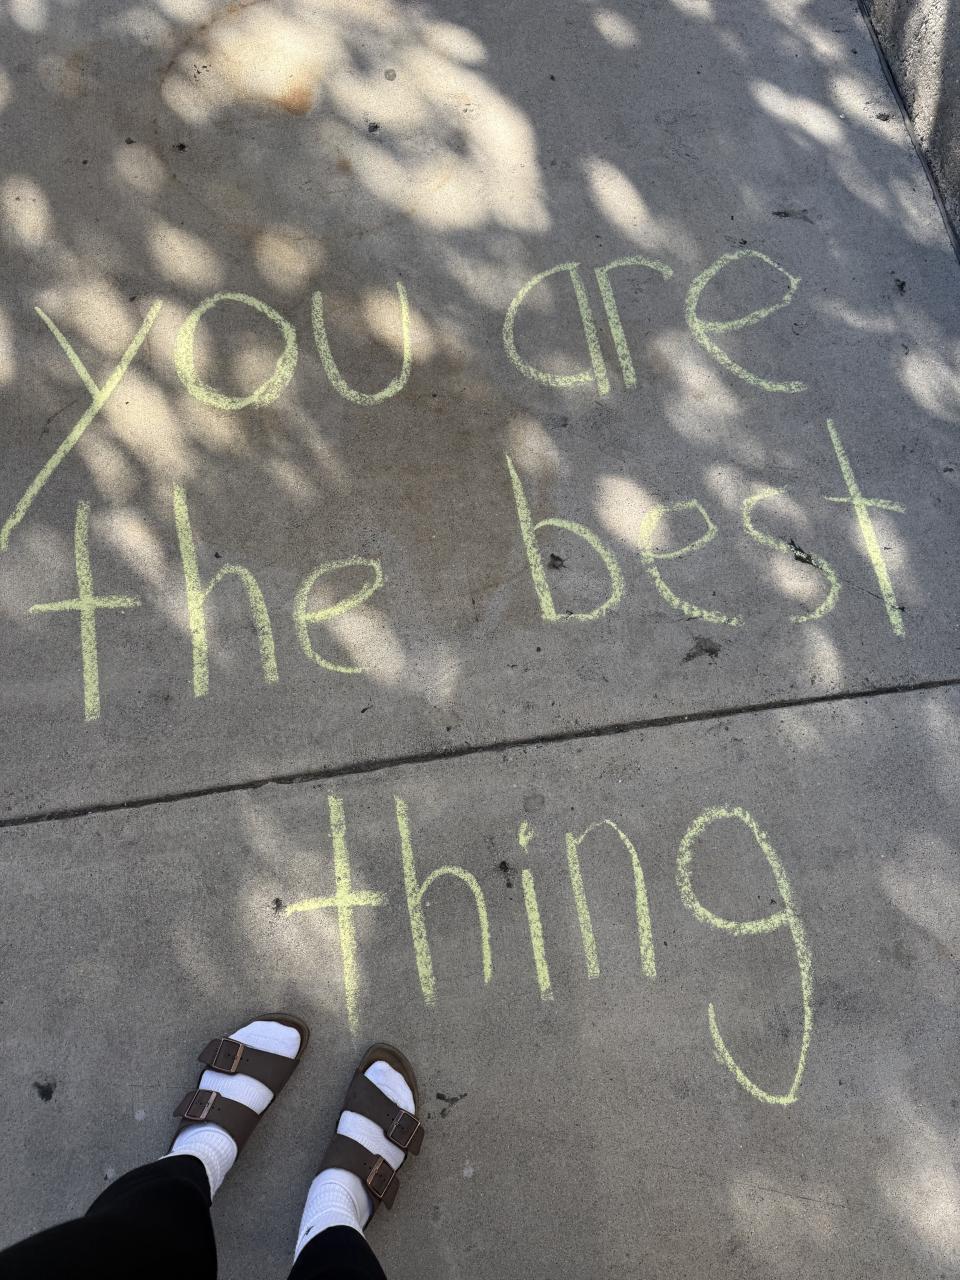 you are
the best
thing